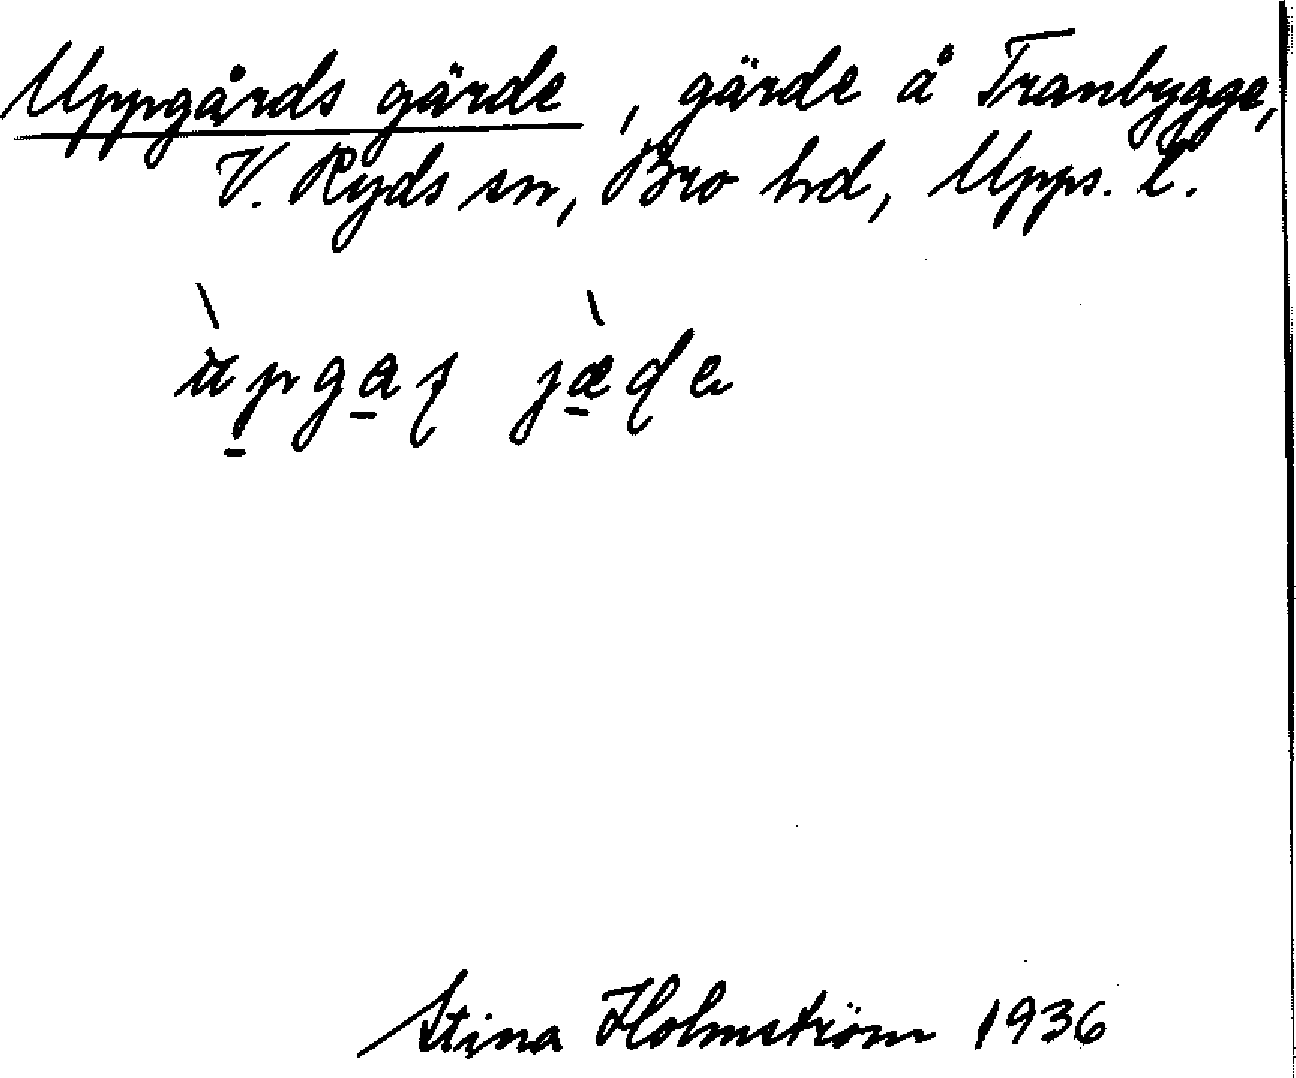 Uppgårds gärde, gärde å Tranbygge,
V. Ryds sn, Bro hd, Upps. l.
Stina Holmström 1936